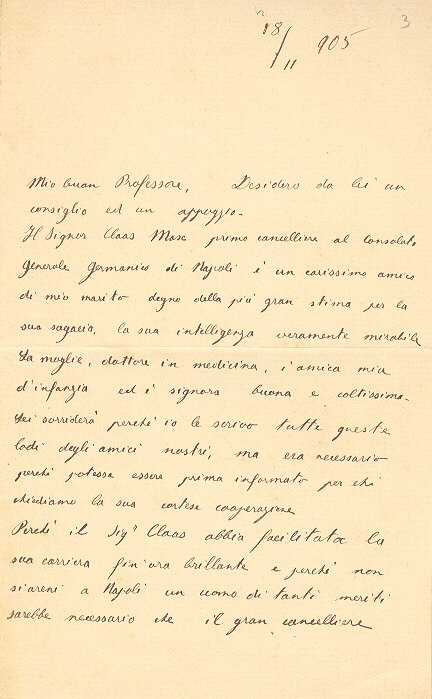 3
28/11 905
Mio buon Professore, Desidero da lei un
consiglio ed un appoggio.
Il Signor Claas Max primo cancelliere al consolato
Generale Germanico di Napoli è un carissimo amico
di mio marito degno della più gran stima per la
sua sagacia, la sua intelligenza veramente mirabile
La moglie, dottore in medicina, è amica mia
d'infanzia ed è signora buona e coltissima.
Lei sorriderà perchè io le scrivo tutte queste
lodi degli amici nostri, ma era necessario
perchè potesse essere prima informato per chi
chiediamo la sua cortese cooperazione
Perchè il Sigr Claas abbia facilitata la
sua carriera fin'ora brillante e perchè non
si areni a Napoli un uomo di tanti meriti
sarebbe necessario che il gran cancelliere